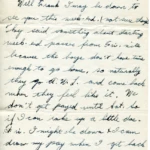 Well Frank I may be down to
see you this week end. I not sure though
They said something about starting
week end passes from Friday nite
because the boys don't have time
enough to go some, so naturally
they go A.W.L. and come back
when they feel like it. We
don't get payed until but
if I can rake up a little dough
to do it. I might be down & I can
draw my pay when I get back